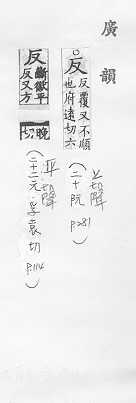 廣韻
上聲
反 反覆又不順也府遠切六
(二十阮 p281)
平聲
反 斷獄平反又方晚切
(二十二元·孚袁切 p114)